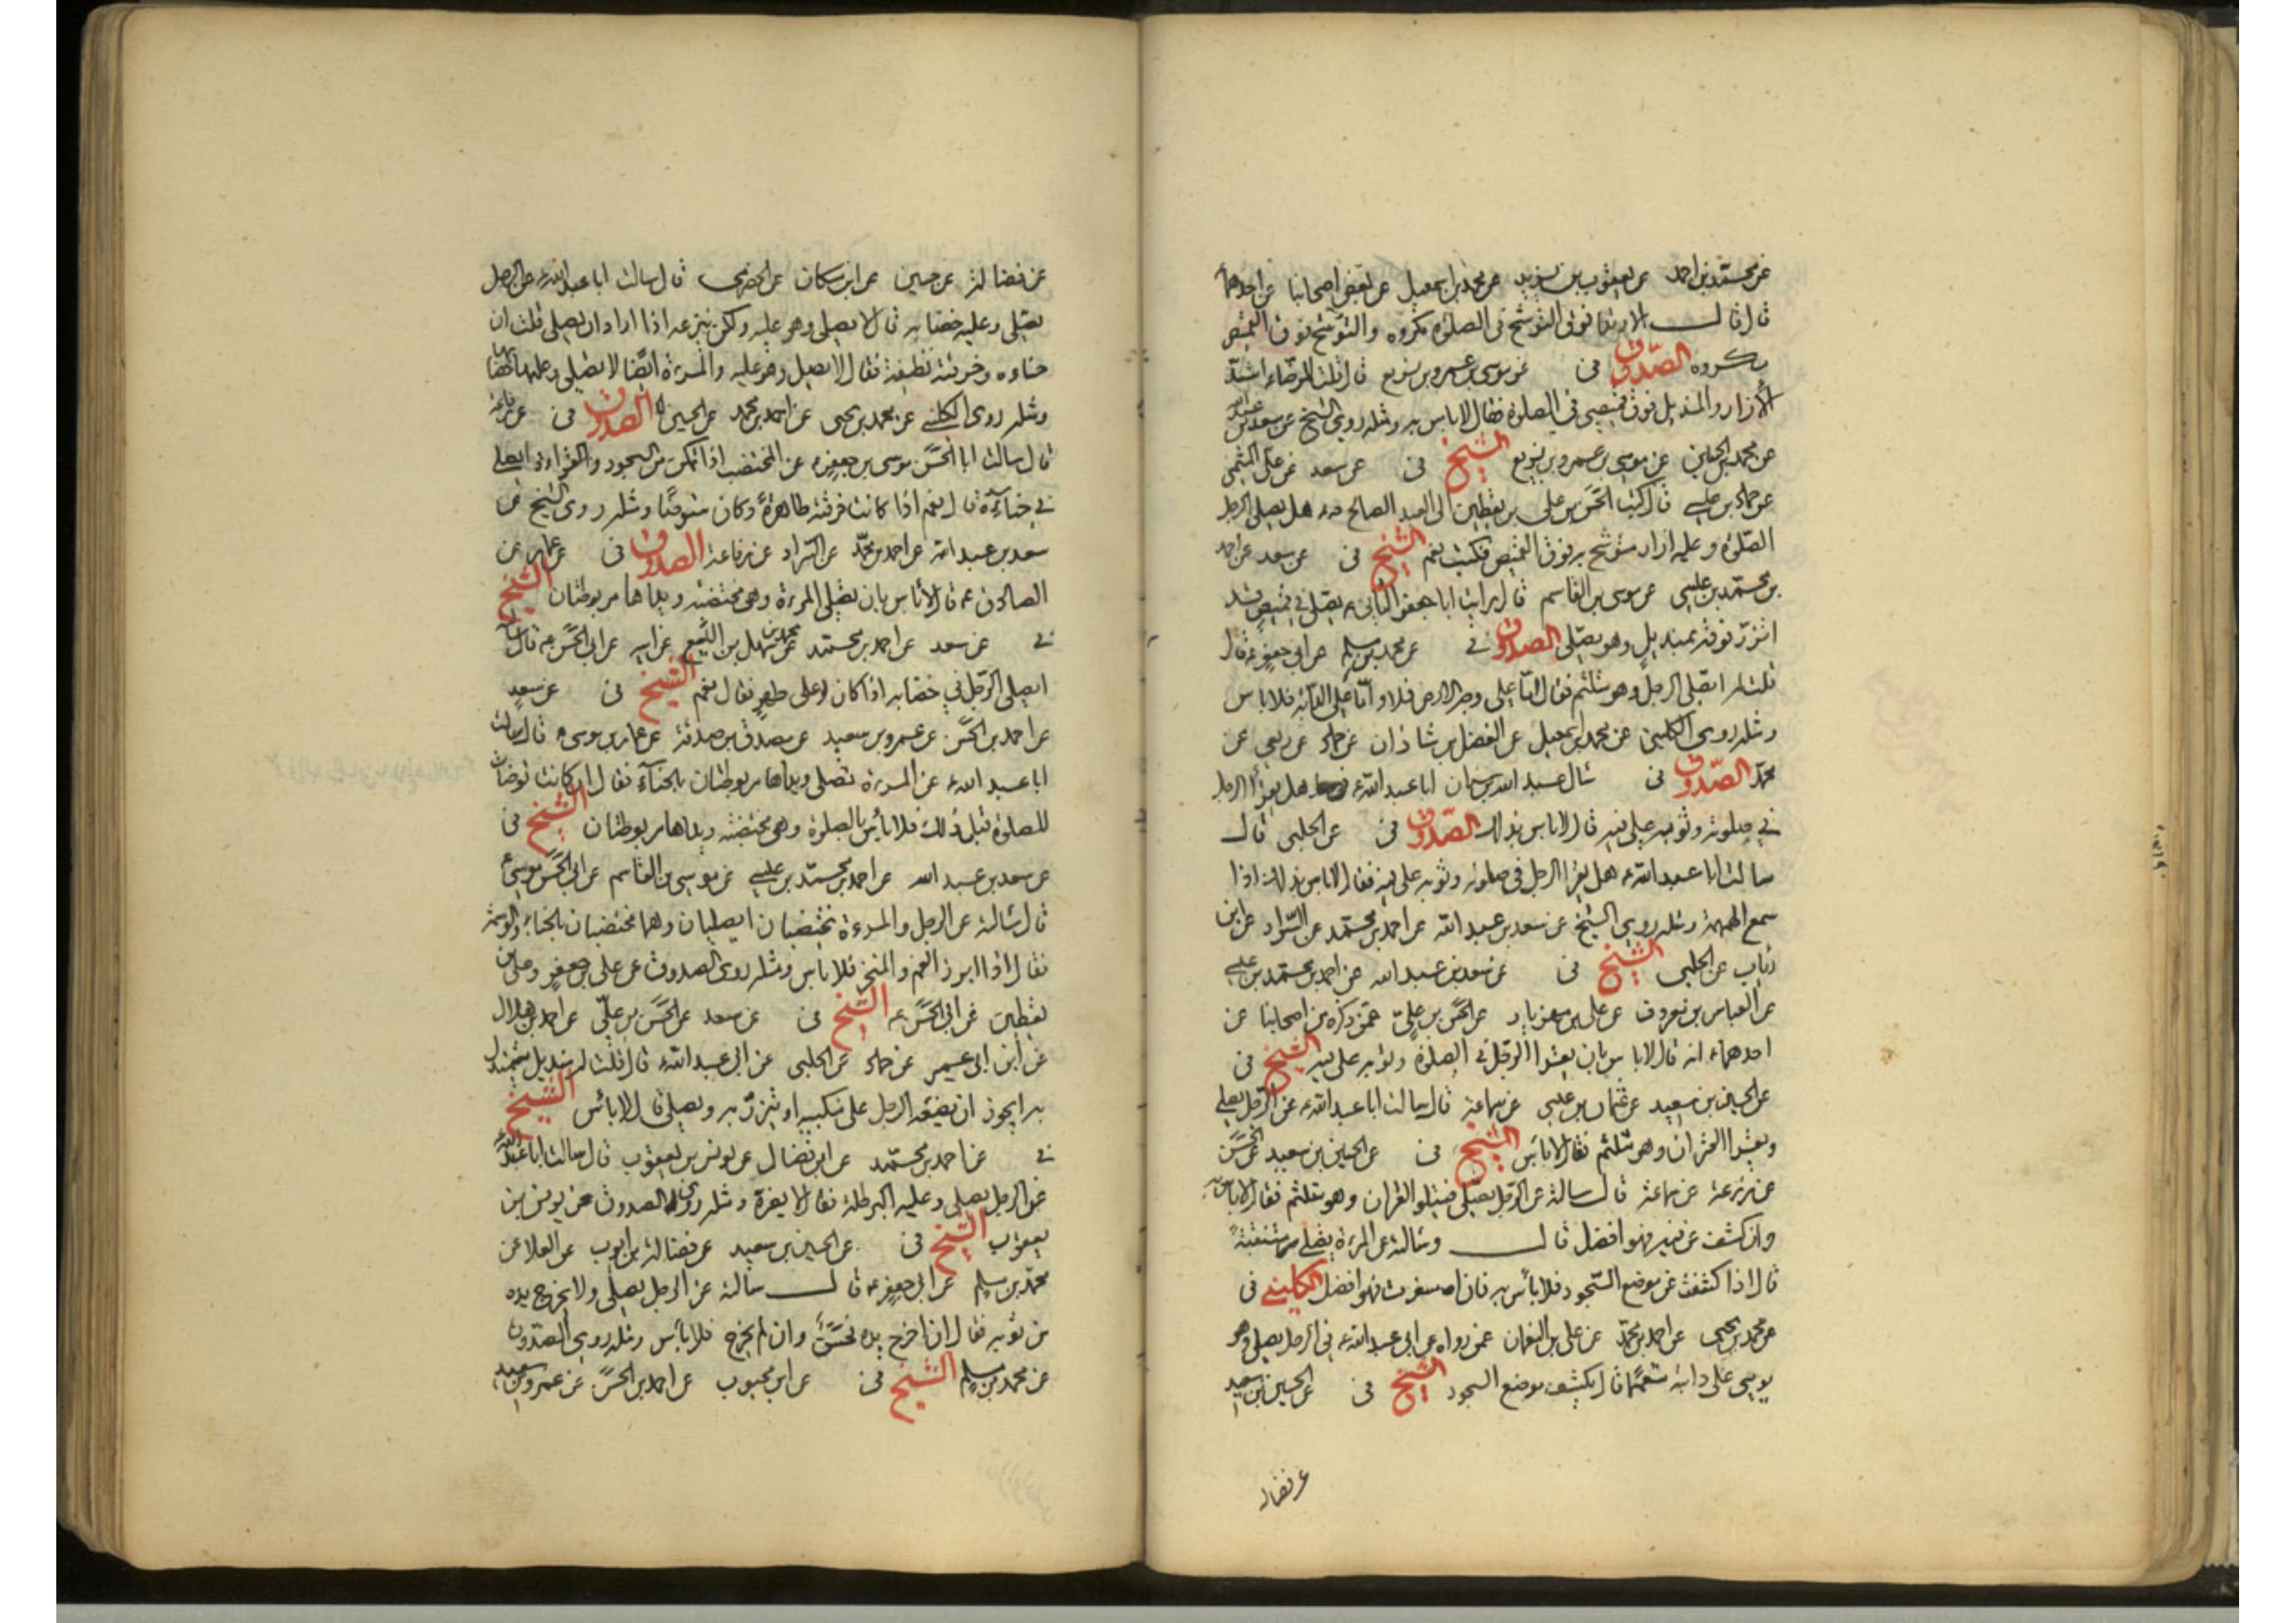 عن محمد بن احمد عن يعقوب بن يزيد عن محمد بن اسمعيل عن بعض اصحابنا عن احدهما
قال قال الارتدا فوق التوشح فى الصلوة مكروه والتوشح فوق القميص
مكروه الصدوق فى عن موسى بن عمر بن بزيع قال قلت للرضاء اشد
الازار والمنديل فوق قميصى فى الصلوة فقال لا باس به ومثله روى الشيخ عن سعد بن عبد الله
عن محمد بن الحسين عن موسى بن عمر بن بزيع الشيخ فى عن سعد عن على
عن حماد بن عيسى قال كتب الحسن بن على بن يقطين الى العبد الصالح هل يصلى الرجل
الصلوة وعليه ازار متوشح به فوق القميص فكتب نعم الشيخ فى عن سعد عن احمد
بن محمد بن عيسى عن موسى بن القاسم قال رايت ابا جعفر الثانى يصلى فى قميص قد
اتزر فوقه بمنديل وهو يصلى الصدوق فى عن محمد بن مسلم عن ابى جعفر قال
قلت له ايصلى الرجل وهو متلثم فقال اما على وجه الارض فلا واما على الدابة فلا باس
ومثله روى الكلينى عن محمد بن اسمعيل عن الفضل بن شاذان عن حماد عن ربعى عن
محمد الصدوق فى سال عبد الله بن سنان ابا عبد الله هل يقرا الرجل
فى صلوته وثوبه على فيه قال لا باس بذلك الصدوق فى عن الحلبى قال
سالت ابا عبد الله هل يقرا الرجل فى صلوته وثوبه على فيه فقال لا باس بذلك اذا
سمع الهمهمة ومثله روى الشيخ عن سعد بن عبد الله عن احمد بن محمد عن السراد عن ابن
رئاب عن الحلبى الشيخ فى عن سعد بن عبد الله عن احمد بن محمد بن عيسى
عن العباس بن معروف عن على بن مهزيار عن الحسن بن على عمن ذكره من اصحابنا عن
احدهما انه قال لا باس بان يقرا الرجل فى الصلوة وثوبه على فيه الشيخ فى
عن الحسين بن سعيد عن عثمان بن عيسى عن سماعة قال سالت ابا عبد الله عن الرجل يصلى
ويقرا القران وهو متلثم فقال لا باس الشيخ فى عن الحسين بن سعيد عن الحسن
عن زرعة عن سماعة قال سالته عن الرجل يصلى فيتلو القران وهو متلثم فقال لا باس به
وان كشف عن فيه فهو افضل قال وسالته عن المرءة يصلى متنقبة
قال اذا كشفت عن موضع السجود فلا باس به فان اسفرت فهو افضل الكلينى فى
عن محمد بن يحيى عن احمد بن محمد عن على بن النعمان عمن رواه عن ابى عبد الله فى الرجل يصلى وهو
يومى على دابته متعمما قال يكشف موضع السجود الشيخ فى عن الحسين بن سعيد
عن فضاله
عن فضالة عن حسين عن ابن مسكان عن الحضرمى قال سالت ابا عبد الله عن الرجل
يصلى وعليه خضابه قال لا يصلى وهو عليه ولكن ينزعه اذا اراد ان يصلى قلت ان
حناوه وخرقته نظيفة فقال لا يصلى وهو عليه والمرءة ايضا لا تصلى وعليها خضابها
ومثله روى الكلينى عن محمد بن يحيى عن احمد بن محمد عن الحسين الصدوق فى عن رفاعة
قال سالت ابا الحسن موسى بن جعفر عن المختضب اذا تمكن من السجود والقراءة ايصلى
فى حنائه قال نعم اذا كانت خرقته طاهرة وكان متوضئا ومثله روى الشيخ عن
سعد بن عبد الله عن احمد بن محمد عن السراد عن رفاعة الصدوق فى عن عمار عن
الصادق قال لا باس بان تصلى المرءة وهى مختضبة ويداها مربوطتان الشيخ
فى عن سعد عن احمد بن محمد عن محمد بن سهل بن اليسع عن ابيه عن ابى الحسن قال سالته
ايصلى الرجل فى خضابه اذا كان على طهر فقال نعم الشيخ فى عن سعد
عن احمد بن الحسن عن عمرو بن سعيد عن مصدق بن صدقة عن عمار بن موسى قال سالت
ابا عبد الله عن المرءة تصلى ويداها مربوطتان بالحناء فقال ان كانت توضات
للصلوة قبل ذلك فلا باس بالصلوة وهى مختضبة ويداها مربوطتان الشيخ فى
عن سعد بن عبد الله عن احمد بن محمد بن عيسى عن موسى بن القاسم عن ابى الحسن موسى
قال سالته عن الرجل والمرءة يختضبان ايصليان وهما مختضبان بالحناء والوسمة
فقال اذا ابرز الفم والمنخر فلا باس ومثله روى الصدوق عن على بن جعفر وعلى بن
يقطين عن ابى الحسن الشيخ فى عن سعد عن الحسن بن على عن احمد بن هلال
عن ابن ابى عمير عن حماد عن الحلبى عن ابى عبد الله قال قلت له
به ايجوز ان يضعه الرجل على منكبيه او يتزر به ويصلى قال لا باس الشيخ
فى عن احمد بن محمد عن ابن فضال عن يونس بن يعقوب قال سالت ابا عبد الله
عن الرجل يصلى وعليه البرطلة فقال لا يضره ومثله روى الصدوق عن يونس بن
يعقوب الشيخ فى عن الحسين بن سعيد عن فضالة بن ايوب عن العلا عن
محمد بن مسلم عن ابى جعفر قال سالته عن الرجل يصلى ولا يخرج يده
من ثوبه فقال ان اخرج يده فحسن وان لم يخرج فلا باس ومثله روى الصدوق
عن محمد بن مسلم الشيخ فى عن ابن محبوب عن احمد بن الحسن عن عمرو بن سعيد